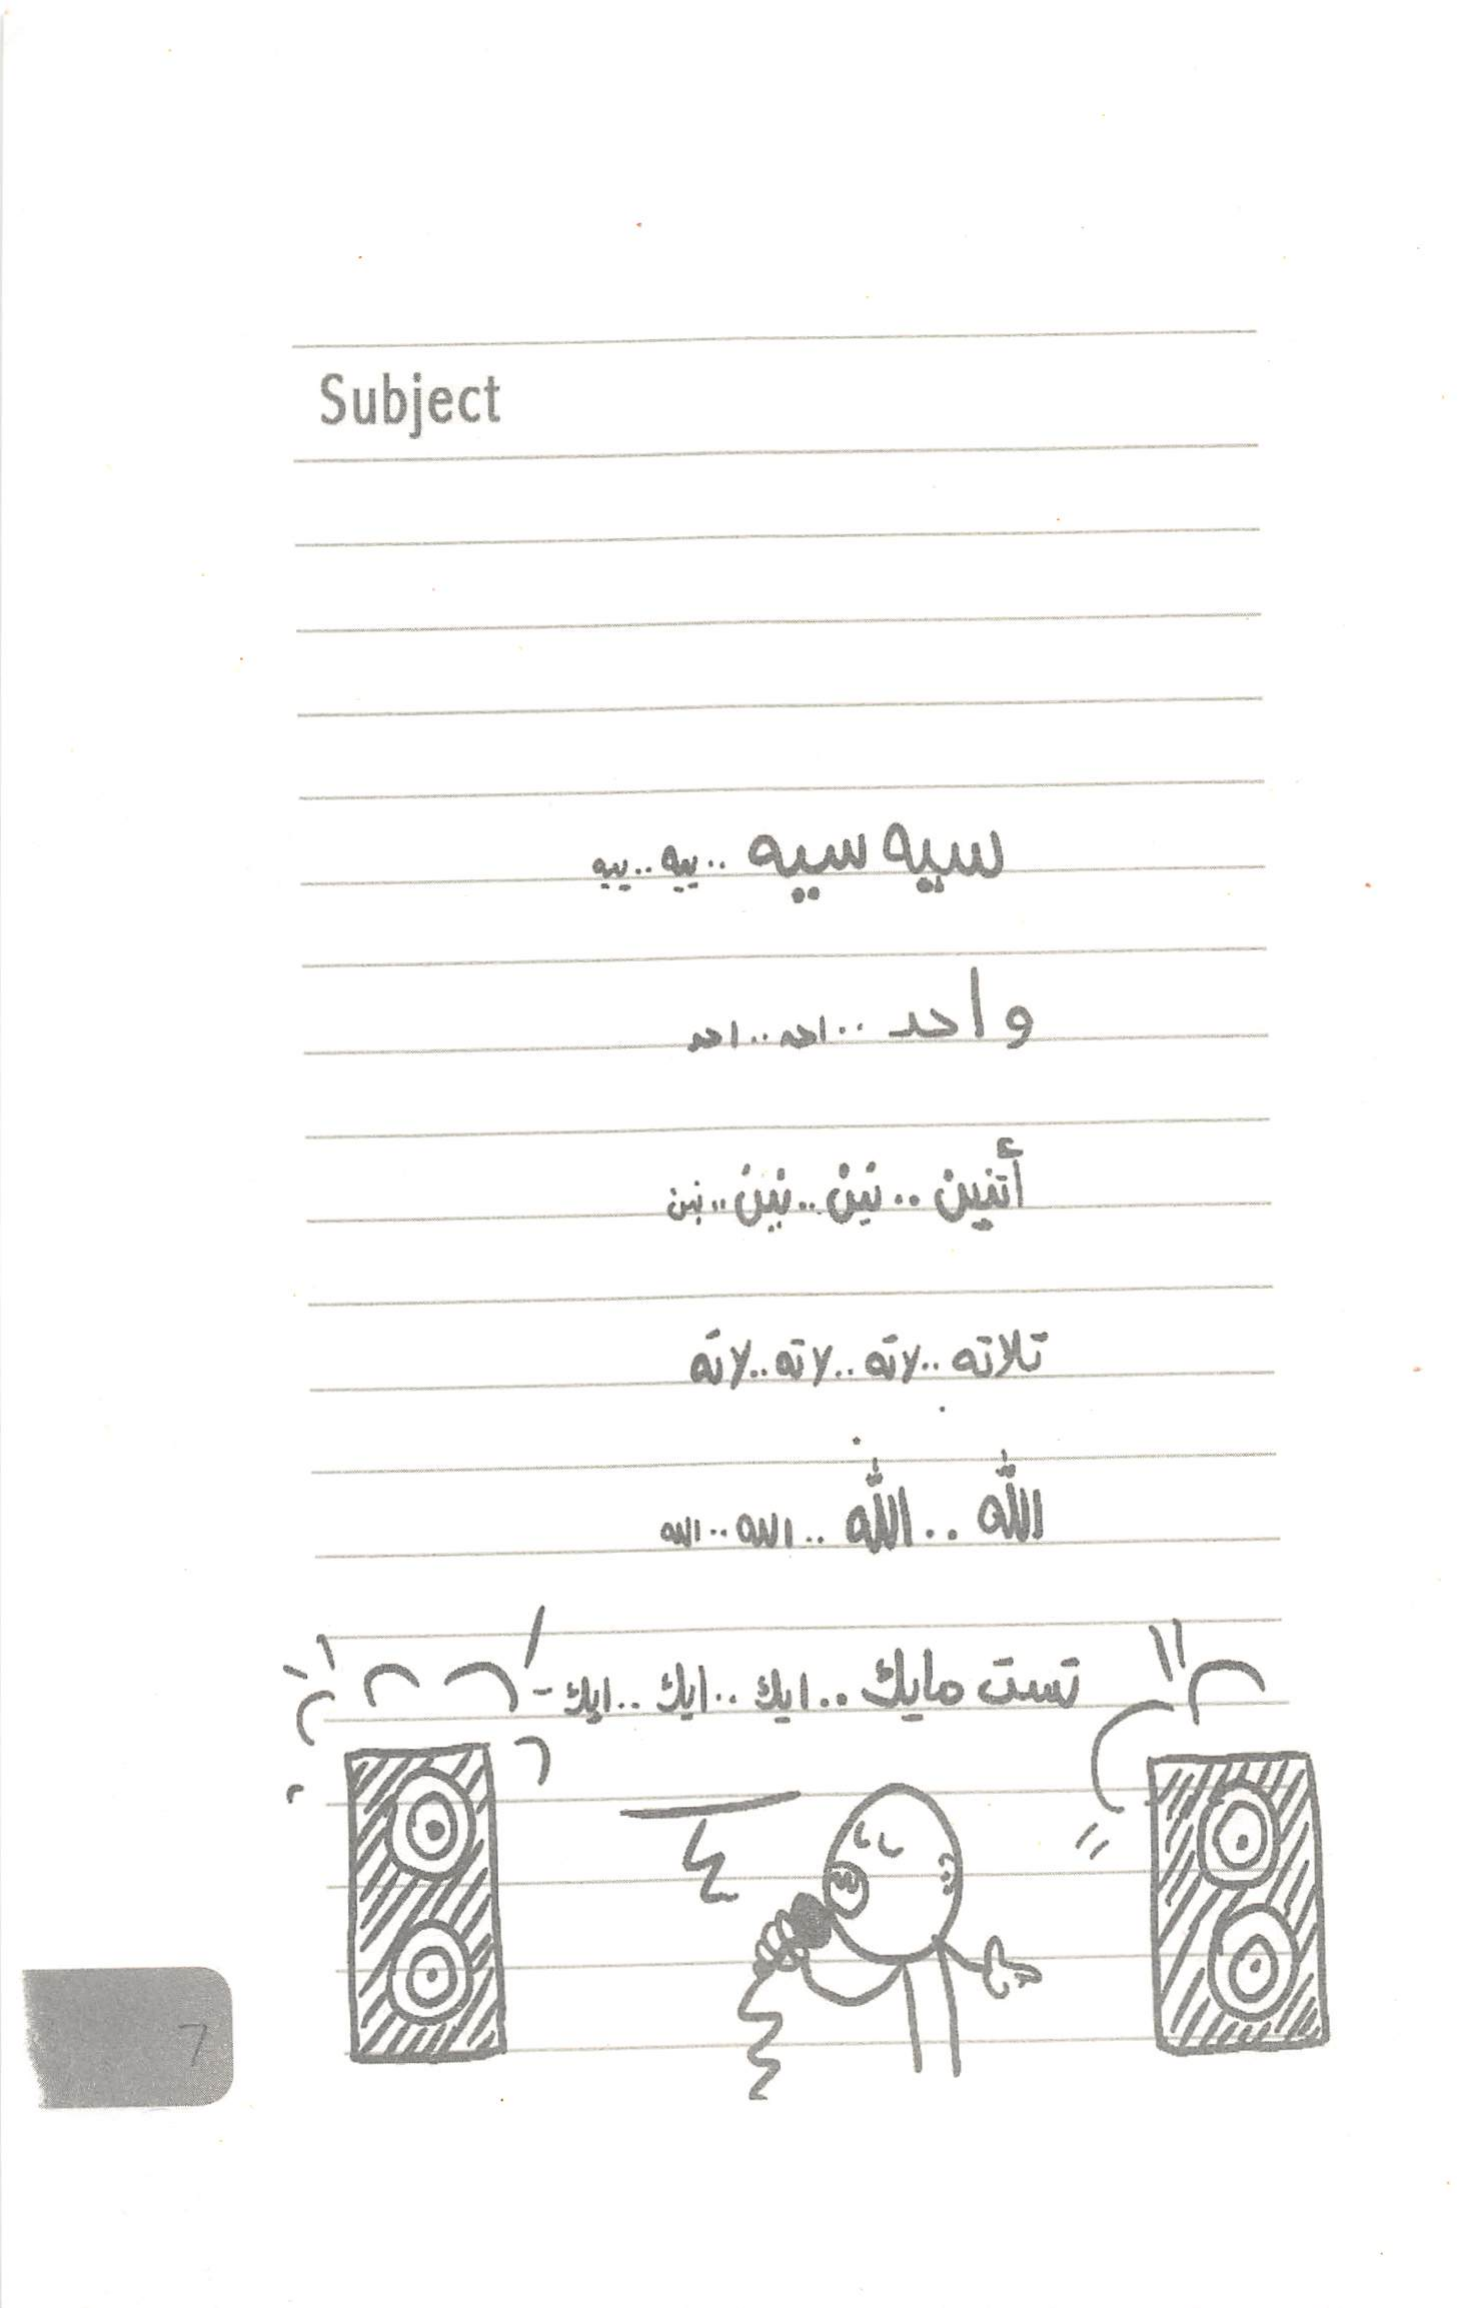 Subject
سيه سيه .. يه .. ييه
واحد .. احد .. احد
أتنين .. تين .. نين .. نين
تلاته .. لاته .. لاته .. لاته
الله .. الله .. الله .. الله
تست مايك .. ايك .. ايك .. ايك -
7